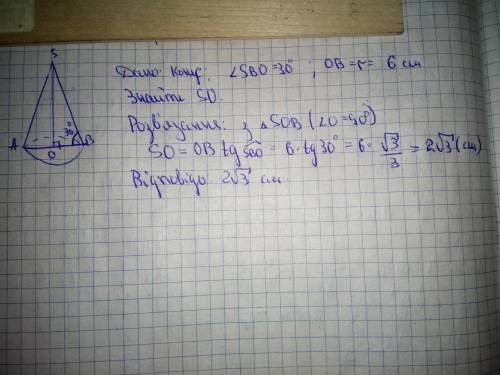 S
Дано: Конус; ∠SBO=30°; OB=r= 6 см
Знайти SO.
Розв'язання: з △SOB (∠O=90°)
SO= OB tg SBO = 6·tg30° = 6· √3/3 = 2√3 (см)
Відповідь 2√3 см.
30°
A O B